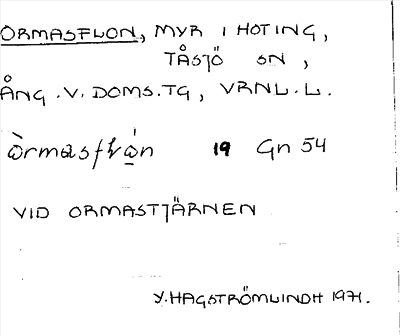 ORMASFLON, MYR I HOTING,
TÅSJÖ SN,
ÅNG.V.DOMS.TG, VRNL.L.
òrmasfɫo̲n 19 Gn 54
VID ORMASTJÄRNEN
Y.HAGSTRÖMLINDH 1971.